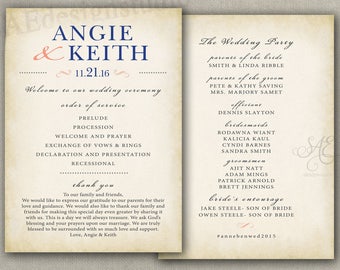 ANGIE
& KEITH
11.21.16
Welcome to our wedding ceremony
order of service
PRELUDE
PROCESSION
WELCOME AND PRAYER
EXCHANGE OF VOWS & RINGS
DECLARATION AND PRESENTATION
RECESSIONAL
thank you
To our family and friends,
We would like to express our gratitude to our parents for their
love and guidance. We would also like to thank our family and
friends for making this special day even greater by sharing it
with us. This is a day we will always treasure. We ask God's
blessing and your prayers upon our marriage. We are truly
blessed to be surrounded with so much love and support.
Love, Angie & Keith
The Wedding Party
parents of the bride
SMITH & LINDA RIBBLE
parents of the groom
PETE & KATHY SAVING
MRS. MARJORY SAMET
officient
DENNIS SLAYTON
bridesmaids
RODAWNA WIANT
KALICIA KAUL
CYNDI BARNES
SANDRA SMITH
groomsmen
AIIT NAJTT
ADAM MINGS
PATRICK ARNOLD
BRETT JENNINGS
bride's entourage
JAKE STEELE- SON OF BRIDE
OWEN STEELE- SON OF BRIDE
#annebenwed2015